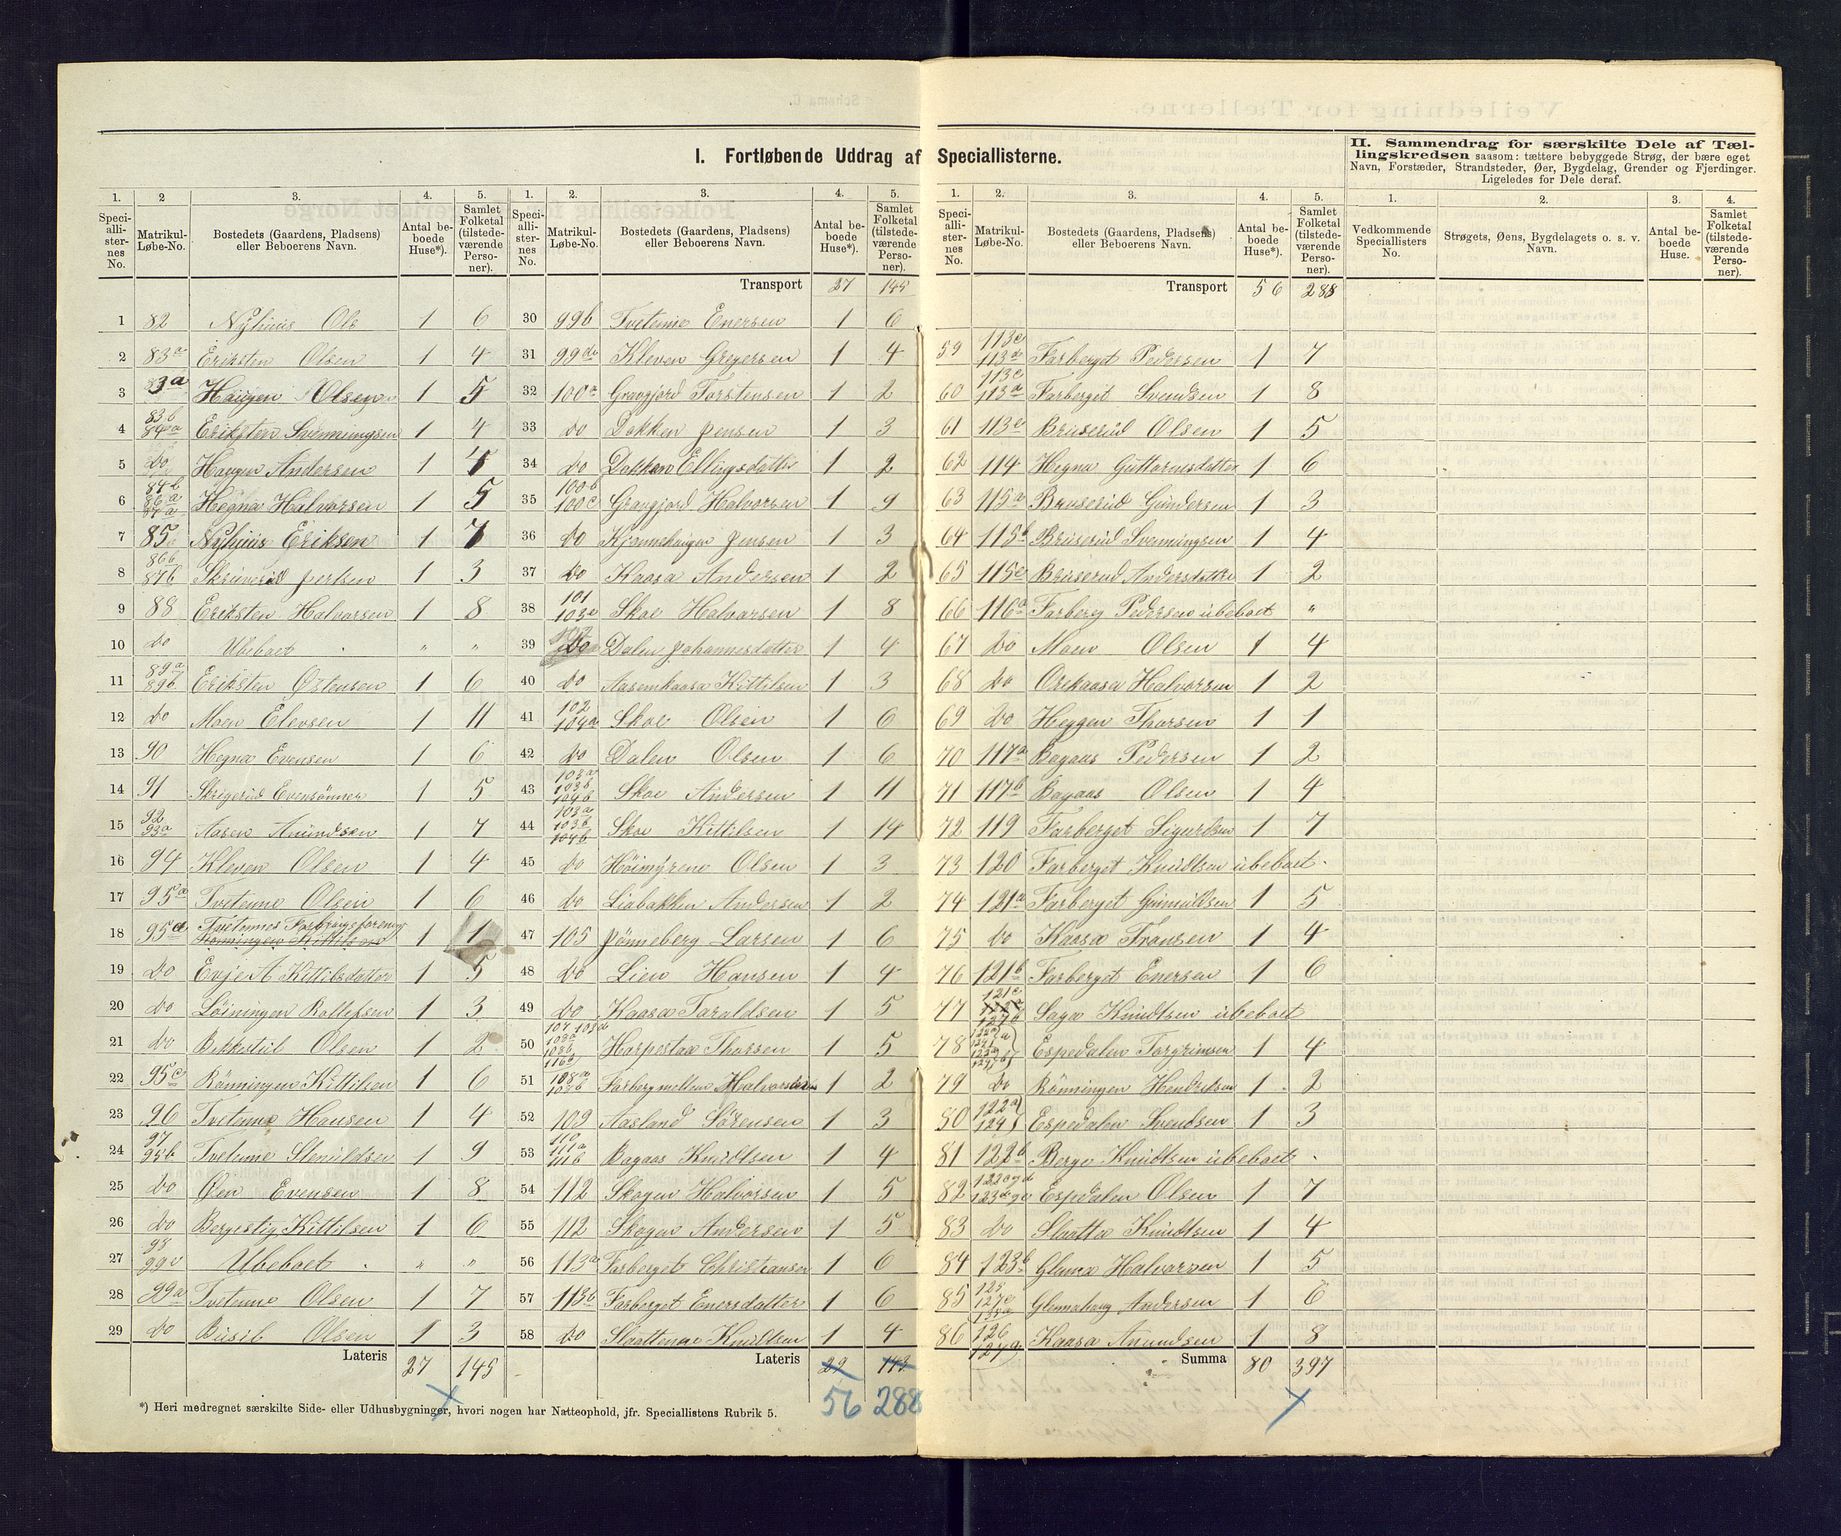 I. Fortløbende Uddrag af Speciallisterne.
II. Sammendrag for særskilte Dele af Tællingskredsen saasom: tættere bebyggede Strøg, der bære eget Navn, Forstæder, Strandsteder, Øer, Bygdelag, Grender og Fjerdinger. Ligeledes for Dele deraf.
1. 2 3. 4. 5.
Speciallisternes No. Matrikul-Løbe-No. Bostedets (Gaardens, Pladsens) eller Beboerens Navn. Antal beboede Huse*). Samlet Folketal (tilstedeværende Personer).
1 82 Nyhuus Ole 1 6
2 83a Eriksten Olsen 1 4
3 Haugen Olsen 1 5
4 83b 84a Eriksten Svenningsen 1 4
5 do Haugen Andersen 1
6 84b 86a Hegna Halvorsen 1 5
7 85 Nyhuus Eriksen 1 7
8 86b 87b 1 3
9 88 Eriksten Halvorsen 1 8
10 do Ubeboet " "
11 89a 89b Eriksten Østensen 1 6
12 do Moen Elevsen 1 11
13 90 Hegna Evensen 1 6
14 91 Skrigerud Evensønner 1 5
15 92 93a Aasen Amundsen 1 7
16 94 Kleven Olsen 1 4
17 95a Tvetenne Olsen 1 6
18 95a 1 1
19 do Evje A Kittilsdatter 1 5
20 do Løiningen Rollefsen 1 3
21 do Bekkestul Olsen 1 2
22 95c Rønningen Kittilsen 1 6
23 96 Tvetenne Hansen 1 4
24 97 95b Tvetenne Stenuldsen 1 9
25 do Øen Evensen 1 8
26 do Bergestig Kittilsen 1 6
27 98 Ubeboet " "
28 99a Tvetenne Olsen 1 7
29 do Busil Olsen 1 3
Lateris 27 145
1. 2. 3. 4. 5.
Speciallisternes No. Matrikul-Løbe-No. Bostedets (Gaardens, Pladsens) eller Beboerens Navn. Antal beboede Huse*). Samlet Folketal (tilstedeværende Personer).
Transport 27 145
30 99b Tvetenne Enersen 1 6
31 Kleven Gregersen 1 4
32 100a Gravgjord Torstensen 1 2
33 do Dokken Jensen 1 3
34 do Dokken Ellingsdatter 1 2
35 100b 100c Gravgjord Halvorsen 1 9
36 do Jensen 1 3
37 do Kaasa Andersen 1 2
38 101 Skoe Halvorsen 1 8
39 do Dalen Johannesdatter 1 4
40 do Aasemkaasa Kittilsen 1 3
41 102 104a Skoe Olsen 1 6
42 do Dalen Olsen 1 6
43 103a 103b 104b Skoe Andersen 1 11
44 103a 103b 104b Skoe Kittilsen 1 14
45 do Høimyrene Olsen 1 3
46 do Liabakken Andersen 1 2
47 105 Jønneberg Larsen 1 6
48 do Lien Hansen 1 4
49 do Kaasa Taraldsen 1 5
50 Harpestaa Thorsen 1 5
51 108a 103b Farbergmellem Halvorsen 1 2
52 109 Aasland Sørensen 1 3
53 110 111a 111b Bagaas Knudtsen 1 4
54 112 Skogen Halvorsen 1 5
55 112 Skogen Andersen 1 5
56 113a Farberget Christiansen 1 6
57 113b Farberget Enersdatter 1 6
58 do Slaattenne Knudtsen 1 4
Lateris 29 143
56 288
*) Heri medregnet særskilte Side- eller Udhusbygninger, hvori nogen har Natteophold, jfr. Speciallistens Rubrik 5.
1. 2. 3. 4. 5.
Speciallisternes No. Matrikul-Løbe-No. Bostedets (Gaardens, Pladsens) eller Beboerens Navn. Antal beboede Huse*). Samlet Folketal (tilstedeværende Personer).
Transport 56 288
59 113c 113d Farberget Pedersen 1 7
60 113c 113a Farberget Svendsen 1 8
61 113c Bruserud Olsen 1 5
62 114 Hegna Guttormsdatter 1 6
63 115a Bruserud Gundersen 1 3
64 115b Bruserud Svenningsen 1 4
65 115c Bruserud Andersdatter 1 2
66 116a Farberg Pedersen ubeboet "
67 do Moen Olsen 1 4
68 do Orekaasa Halvorsen 1 2
69 do Heggen Thorsen 1 1
70 117a Bagaas Pedersen 1 2
71 117b Bagaas Olsen 1 4
72 119 Farberget Sigurdsen 1 7
73 120 Farberget Knudtsen ubeboet
74 121a Farberget Gunnuldsen 1 5
75 do Kaasa Fransen 1 4
76 121b Farberget Enersen 1 6
77 121c 127b Saga Knudtsen ubeboet
78 Espedalen Torgrimsen 1 4
79 do Rønningen Hendriksen 1 2
80 122a 124 Espedalen Svendsen 1 3
81 122b Berge Knudtsen ubeboet
82 Espedalen Olsen 1 7
83 do Slaatta Knudtsen 1 4
84 123b Glenna Halvorsen 1 5
85 125 127c Glennahaug Andersen 1 6
86 126 127a Kaasa Amundsen 1 8
Summa 80 397
1. 2. 3. 4.
Vedkommende Speciallisters No. Strøgets, Øens, Bygdelagets o. s. v. Navn. Antal beboede Huse. Samlet Folketal (tilstedeværende Personer).